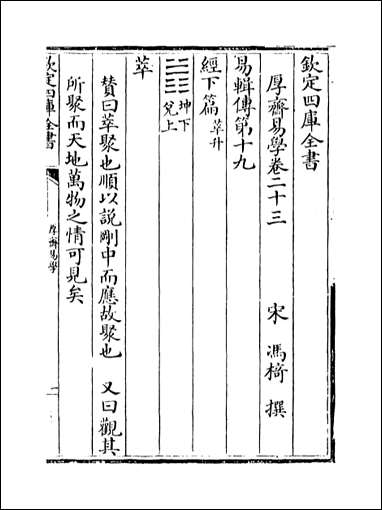 欽定四庫全書
厚齋易學卷二十三
宋 馮椅 撰
易輯傳第十九
經下篇 萃升
坤下
兌上
萃
贊曰萃聚也順以說剛中而應故聚也 又曰觀其
所聚而天地萬物之情可見矣
欽定四庫全書
厚齋易學
一